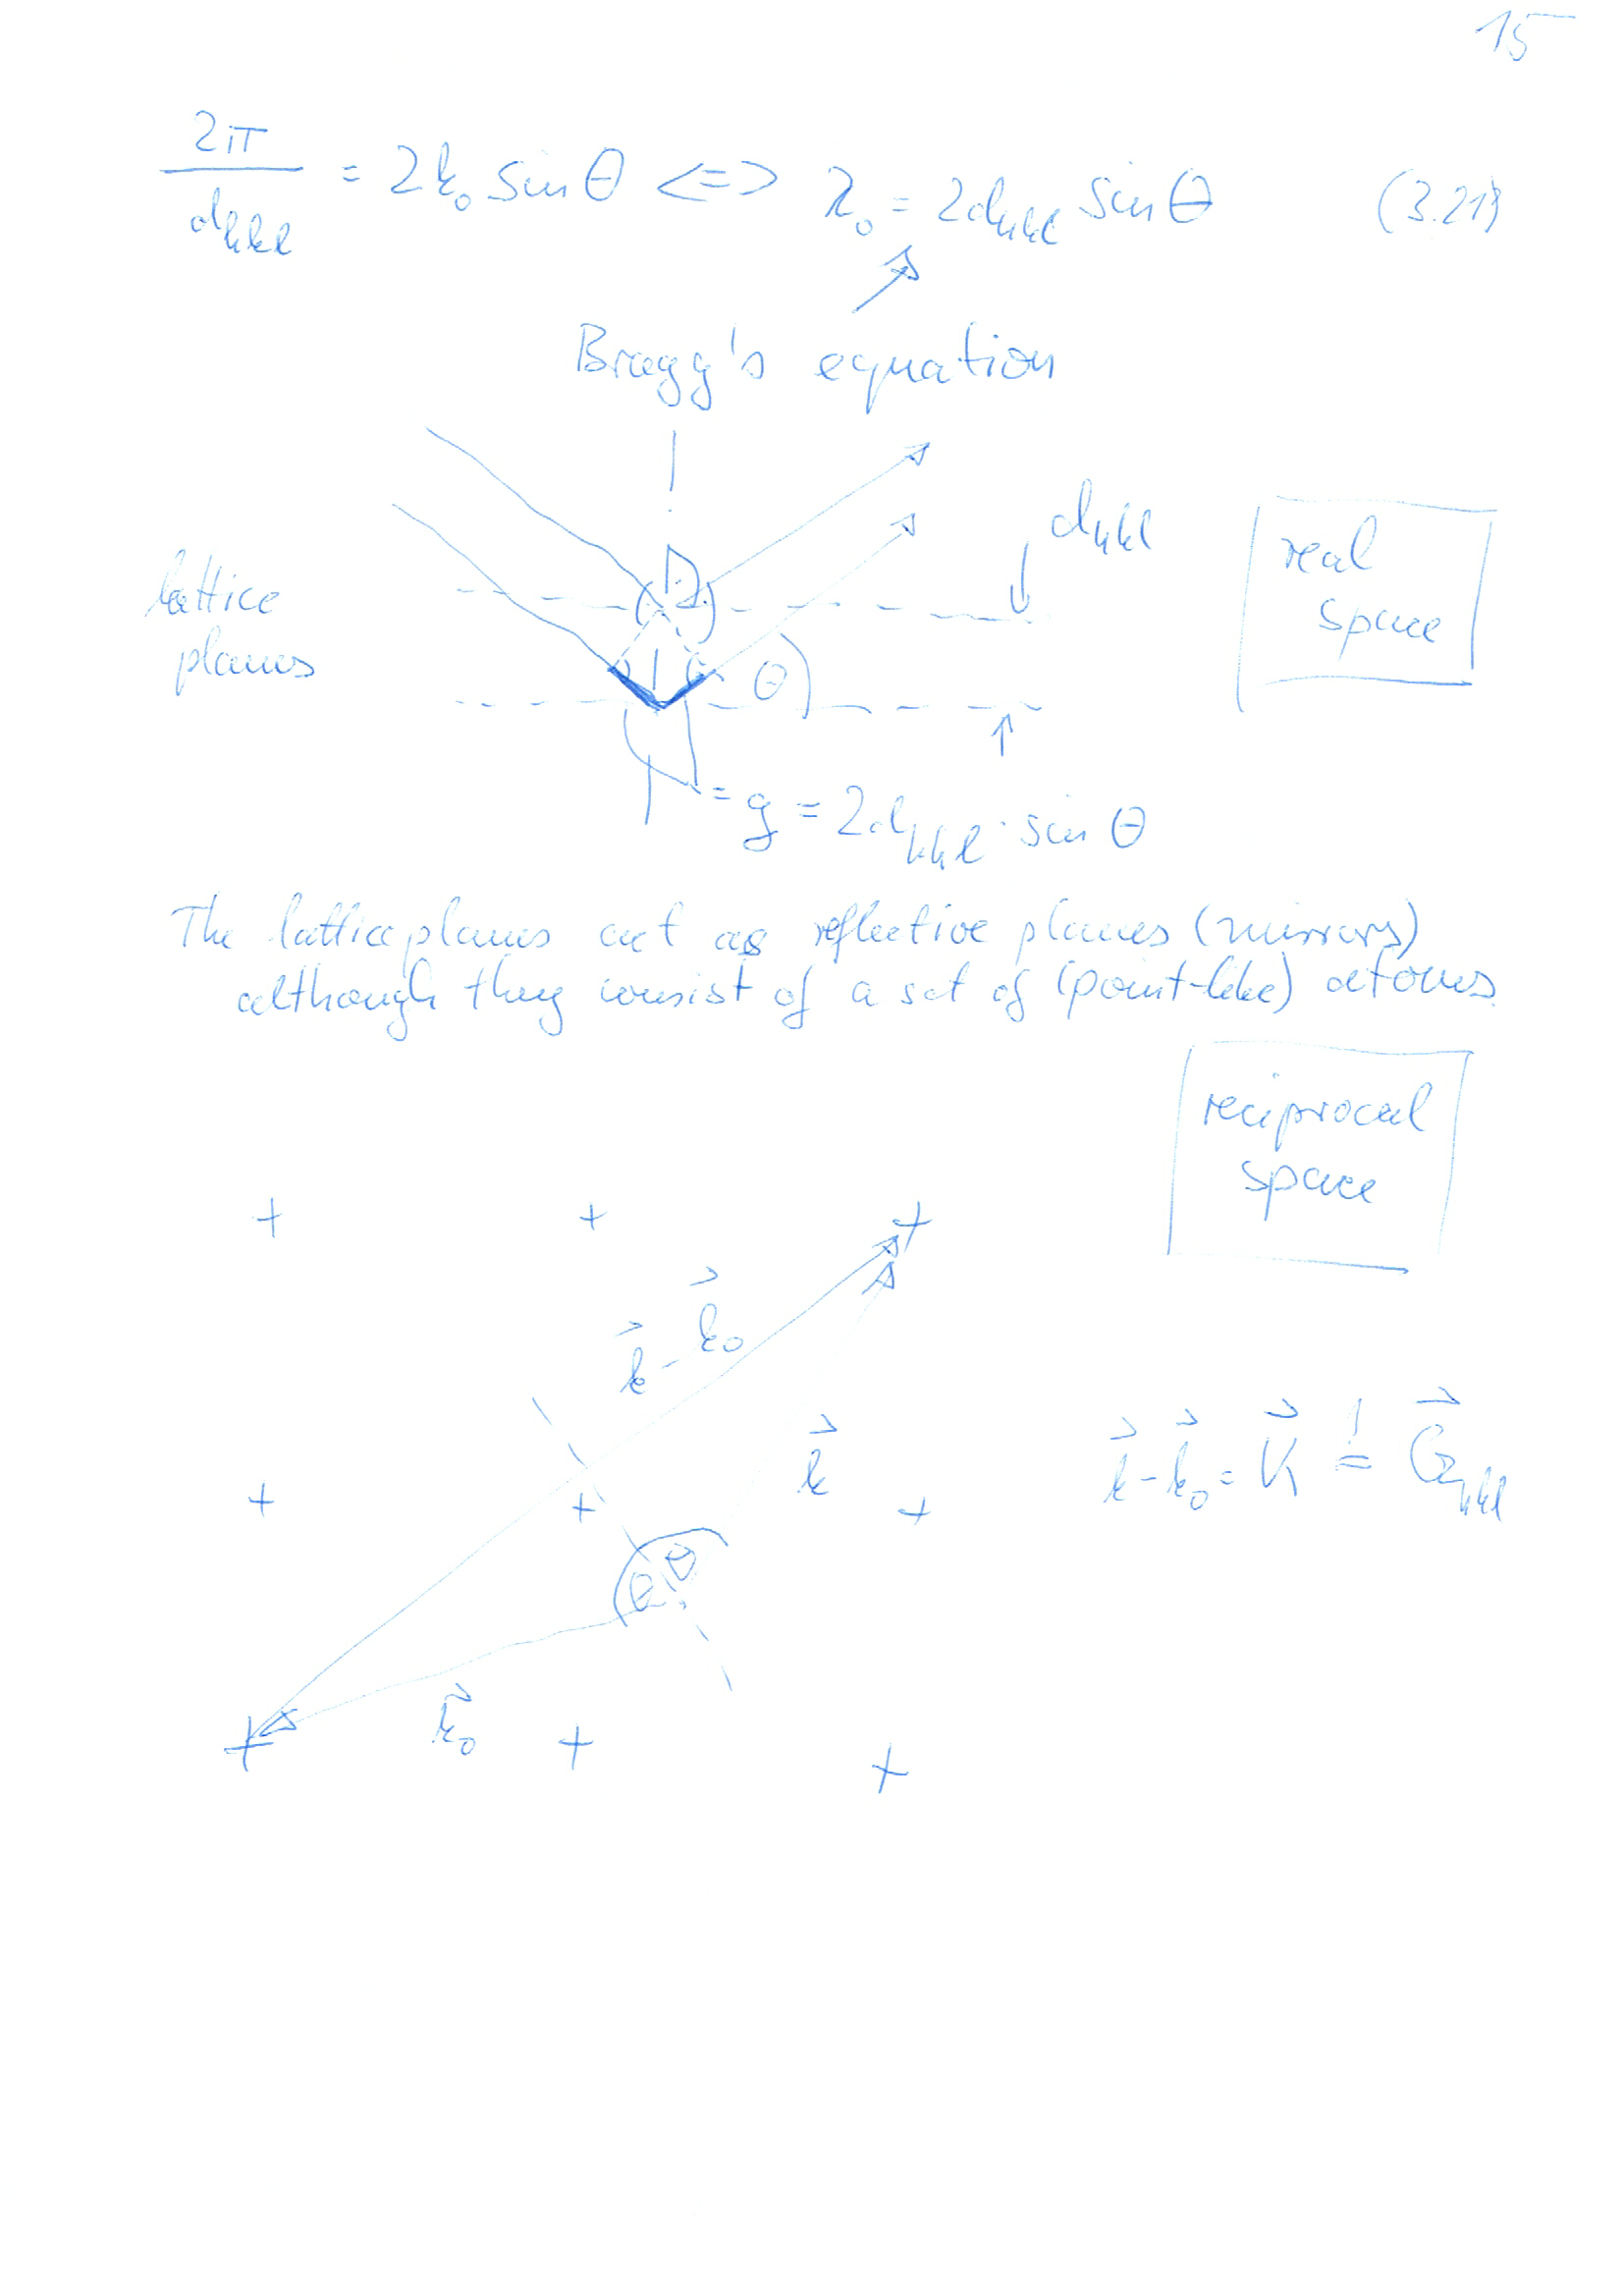 15
2π / d_hkl = 2k₀ sin θ <=> λ₀ = 2d_hkl sin θ (3.21)
Bragg's equation
d_hkl
real
space
lattice
planes
θ
= g = 2d_hkl · sin θ
The lattice planes act as reflective planes (mirrors)
although they consist of a set of (point-like) atoms.
reciprocal
space
k⃗ - k⃗₀
k⃗
k⃗ - k⃗₀ = K⃗ != G⃗_hkl
θ θ
k⃗₀